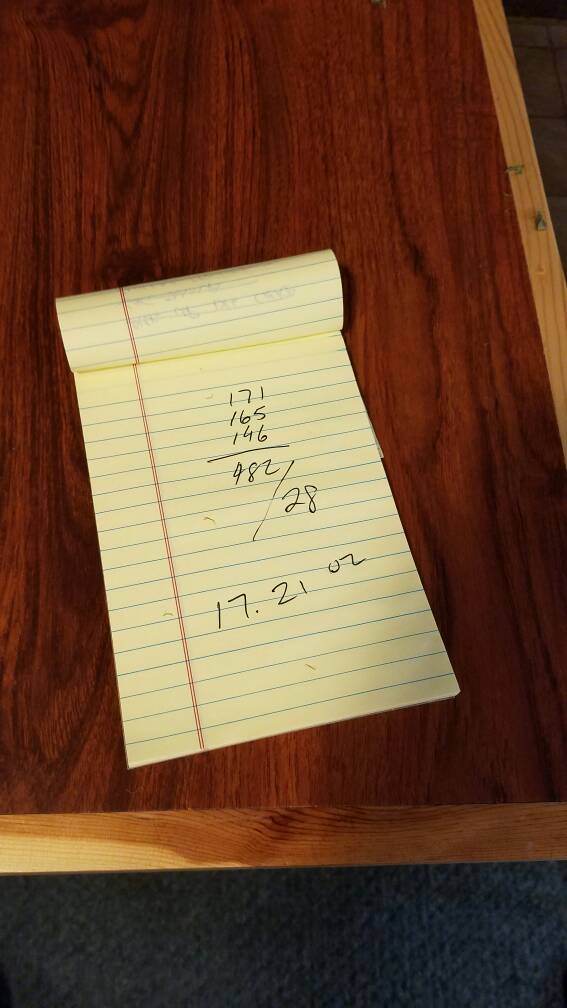 171
165
146
482
/ 28
17.21 oz